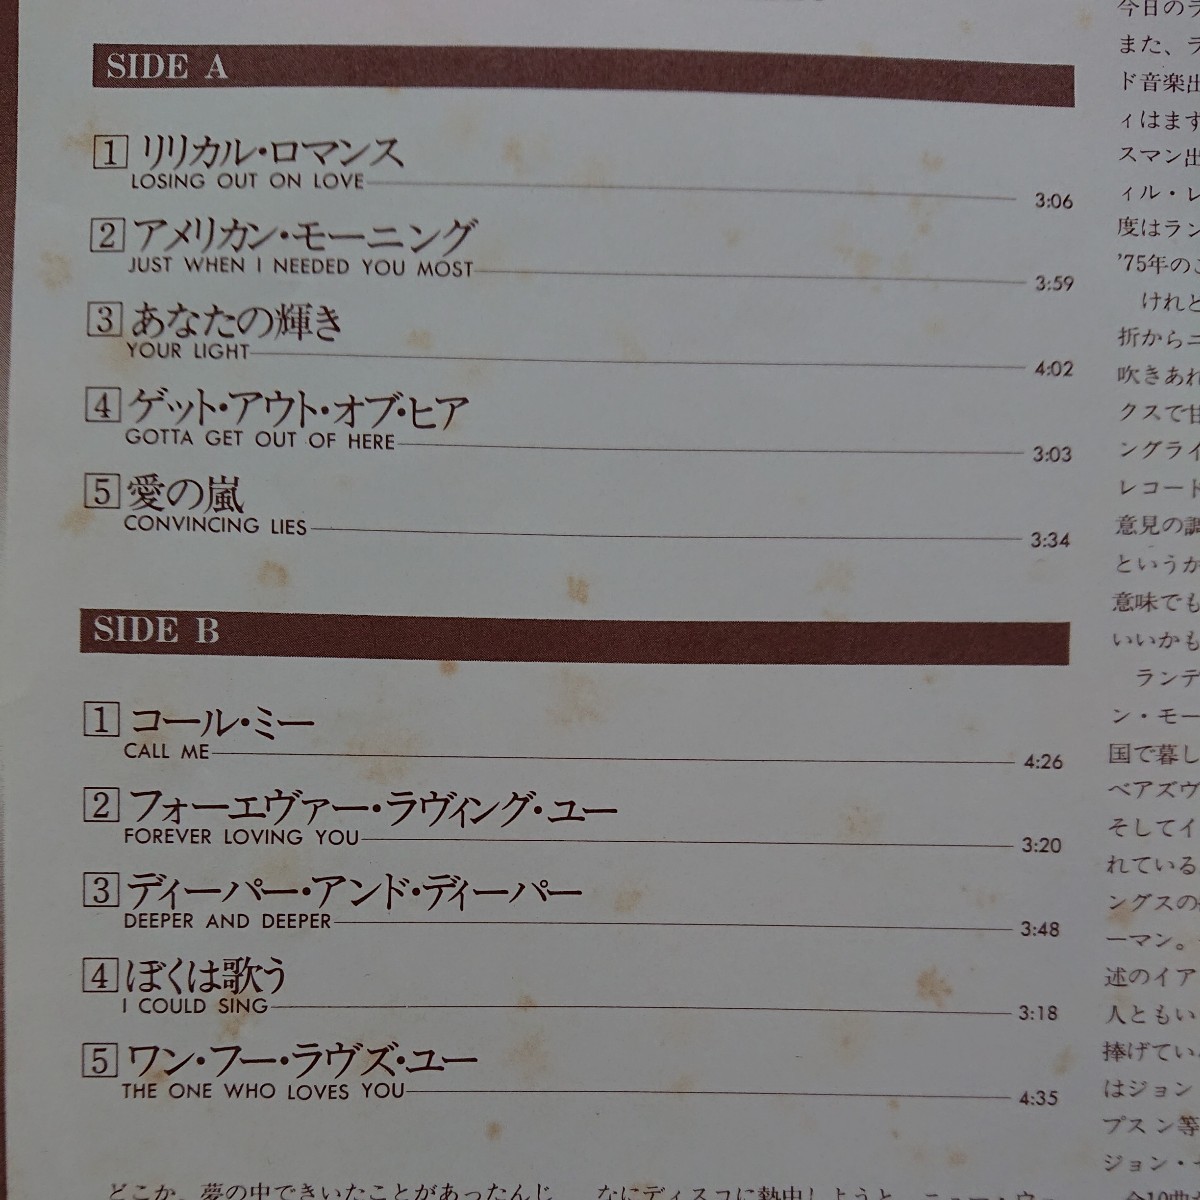 SIDE A
1 リリカル・ロマンス
LOSING OUT ON LOVE 3:06
2 アメリカン・モーニング
JUST WHEN I NEEDED YOU MOST 3:59
3 あなたの輝き
YOUR LIGHT 4:02
4 ゲット・アウト・オブ・ヒア
GOTTA GET OUT OF HERE 3:03
5 愛の嵐
CONVINCING LIES 3:34
SIDE B
1 コール・ミー
CALL ME 4:26
2 フォーエヴァー・ラヴィング・ユー
FOREVER LOVING YOU 3:20
3 ディーパー・アンド・ディーパー
DEEPER AND DEEPER 3:48
4 ぼくは歌う
I COULD SING 3:18
5 ワン・フー・ラヴズ・ユー
THE ONE WHO LOVES YOU 4:35
どこか、夢の中できいたことがあったんじ
なにディスコに熱中しようと、ニュー・ウ
今日のラ
また、ラ
ド音楽出
ィはます
スマン出
ィル・レ
度はラン
'75年のこ
けれど
折からニ
吹きあれ
クスで甘
ングライ
レコード
意見の調
というか
意味でも
いいかも
ランデ
ン・モー
国で暮し
ベアズヴ
そしてイ
れている
ングスの
ーマン。
述のイア
人ともい
捧げてい
はジョン
プスン等
ジョン・